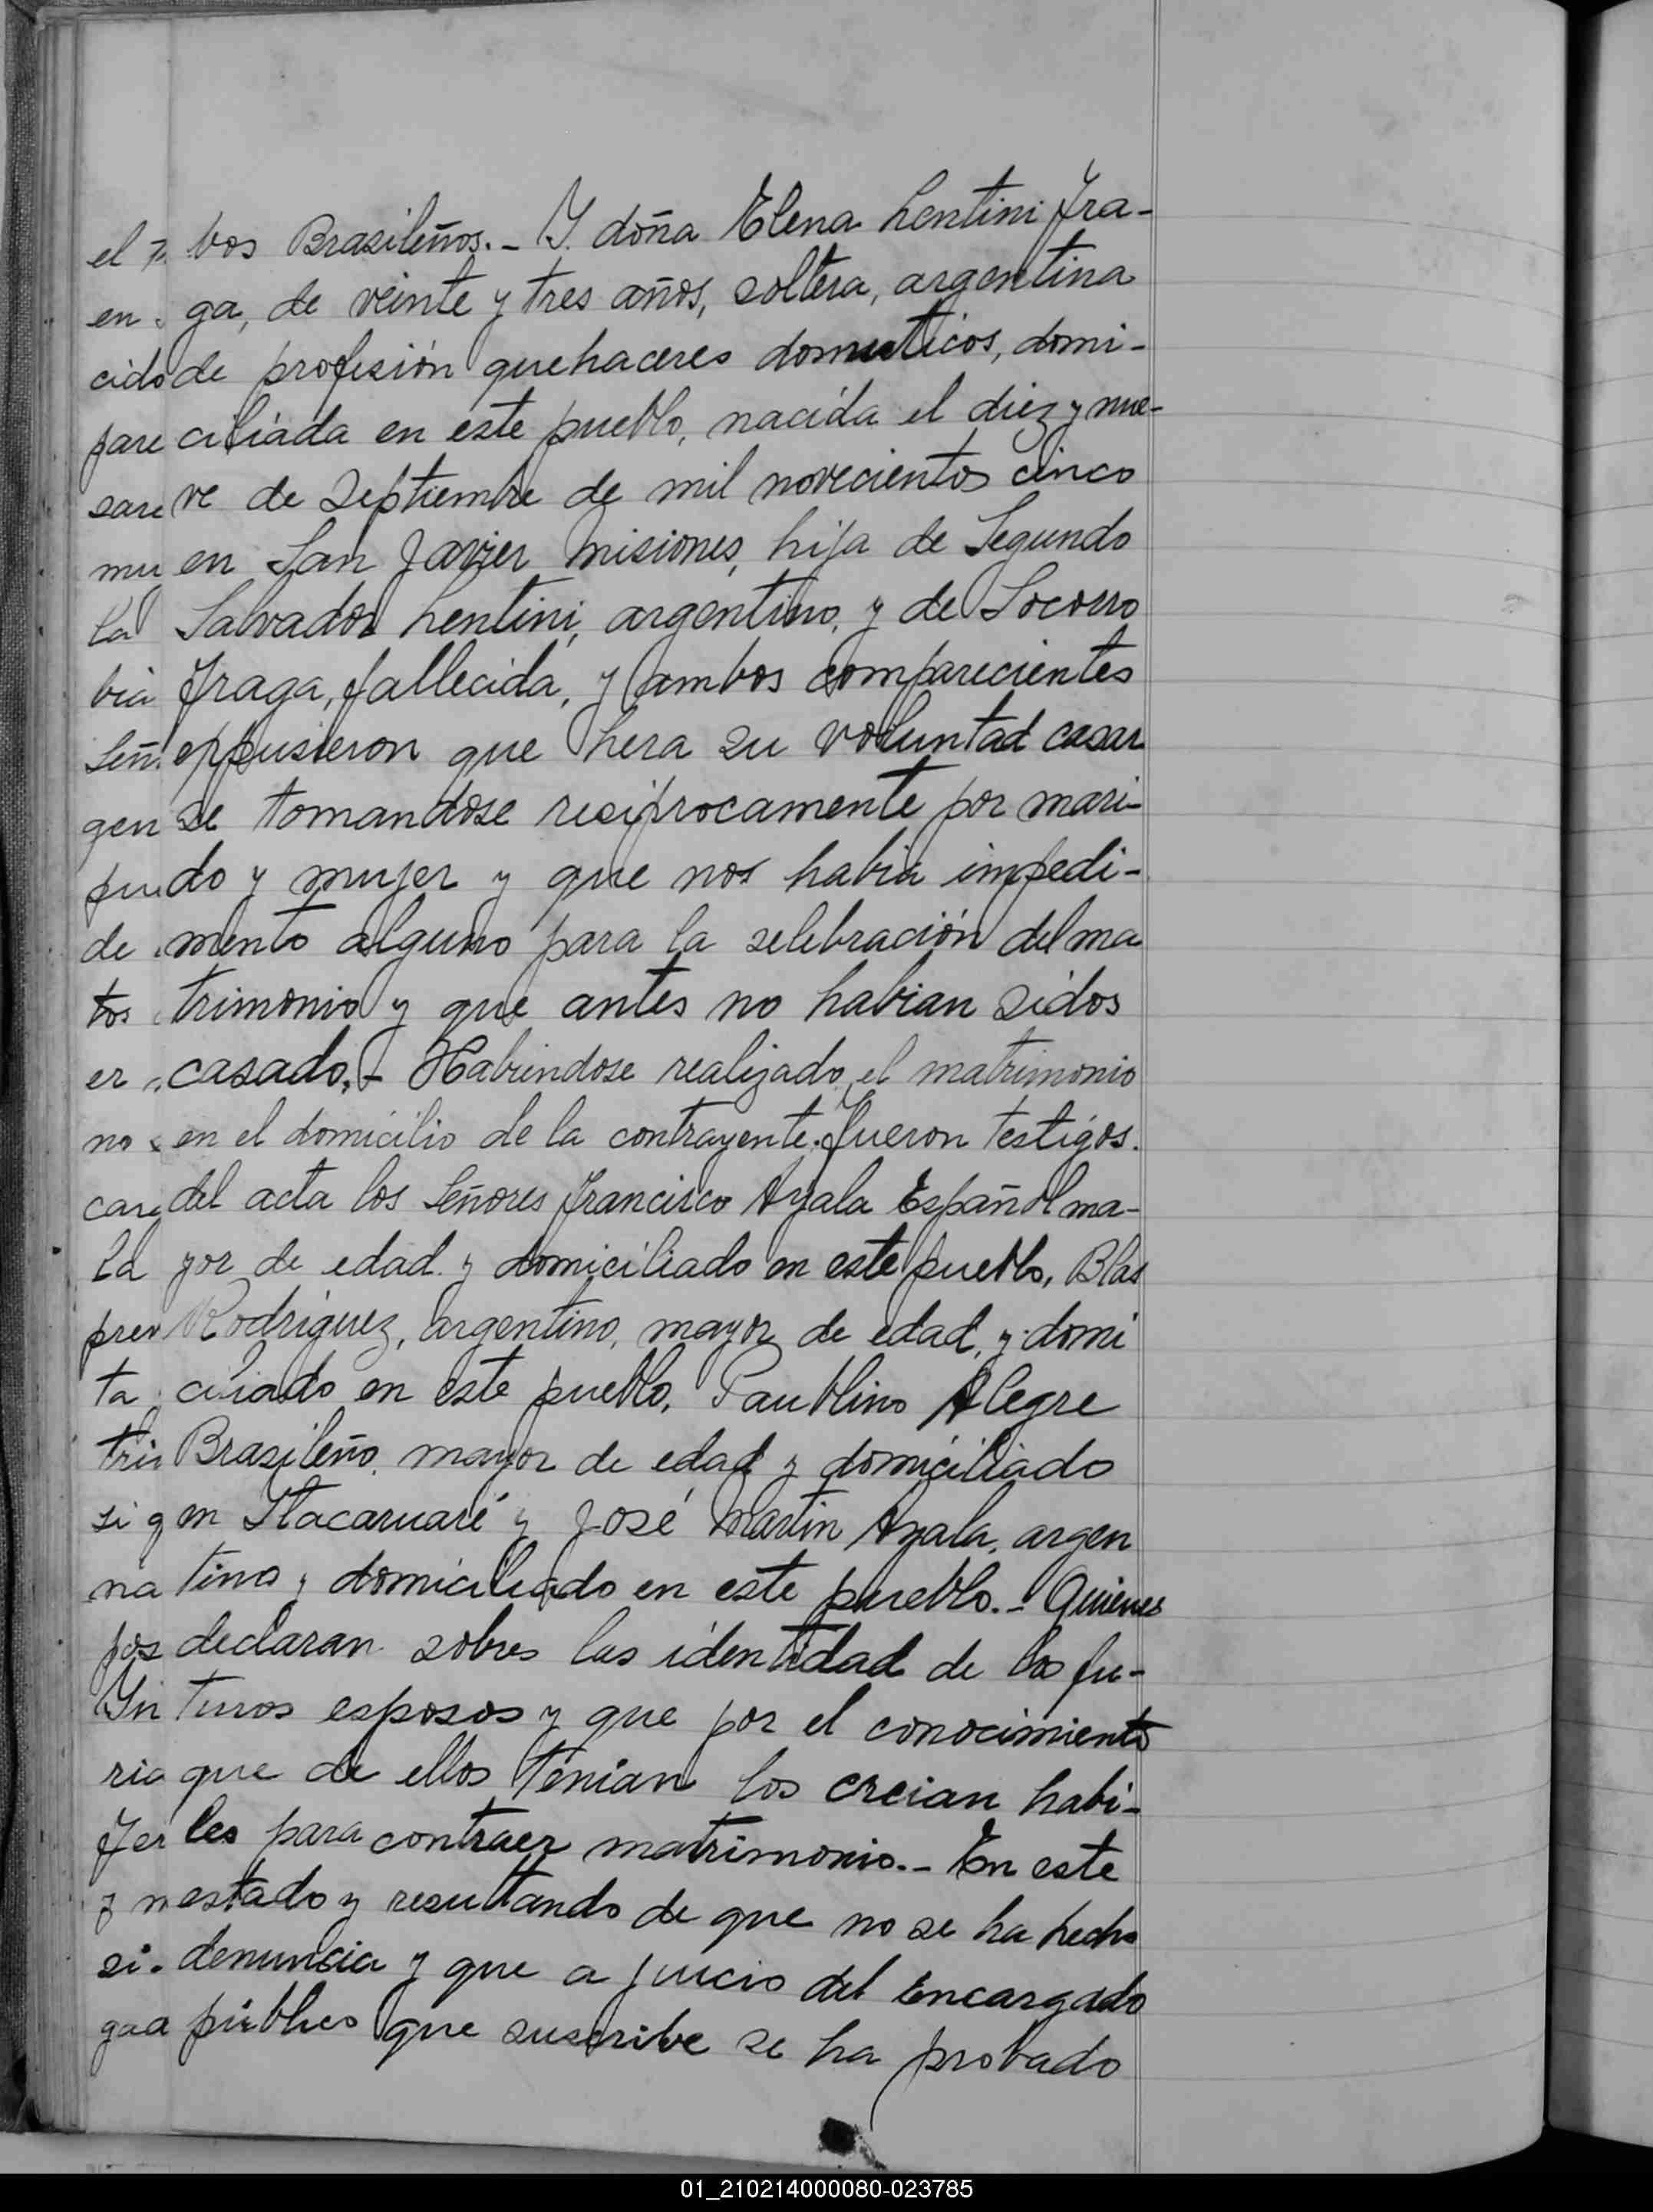 bos Brasileños.- Y. doña Elena Lentini Fra-
ga, de veinte y tres años, soltera, argentina
de profesión quehaceres domesticos, domi-
ciliada en este pueblo, nacida el diez y nue-
ve de Septiembre de mil novecientos cinco
en San Javier Misiones, hija de Segundo
Salvador Lentini, argentino, y de Socorro
Fraga, fallecida, y ambos comparecientes
eppusieron que hera su voluntad casar
se tomandose resiprocamente por mari-
do y mujer y que nos habia impedi-
mento alguno para la selebración del ma
trimonio y que antes no habian sidos
casado.- Habiendose realizado el matrimonio
en el domicilio de la contrayente. fueron testigos.
del acta los Señores Francisco Ayala Español ma-
yor de edad y domiciliado en este pueblo, Blas
Rodriguez, argentino, mayor de edad, y domi
ciliado en este pueblo, Paublino Alegre
Brasileño, mayor de edad y domiciliado
en Itacaruaré y José Martin Ayala, argen
tino y domiciliado en este pueblo.- Quienes
declaran sobres las identidad de los fu-
turos esposos y que por el conocimiento
que de ellos tenian los creian habi-
les para contraer matrimonio.- En este
estado y resultando de que no se ha hecho
denuncia y que a juicio del Encargado
público que suscribe se ha probado
01_210214000080-023785